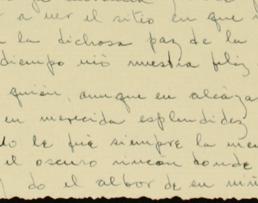 a ver el sitio en que
la dichosa paz de la
tiempo vió nuestra feliz
quién, aunque en alcázar
en merecida esplendidez
le fué siempre la me
el oscuro rincon donde
do el albor de su niñ